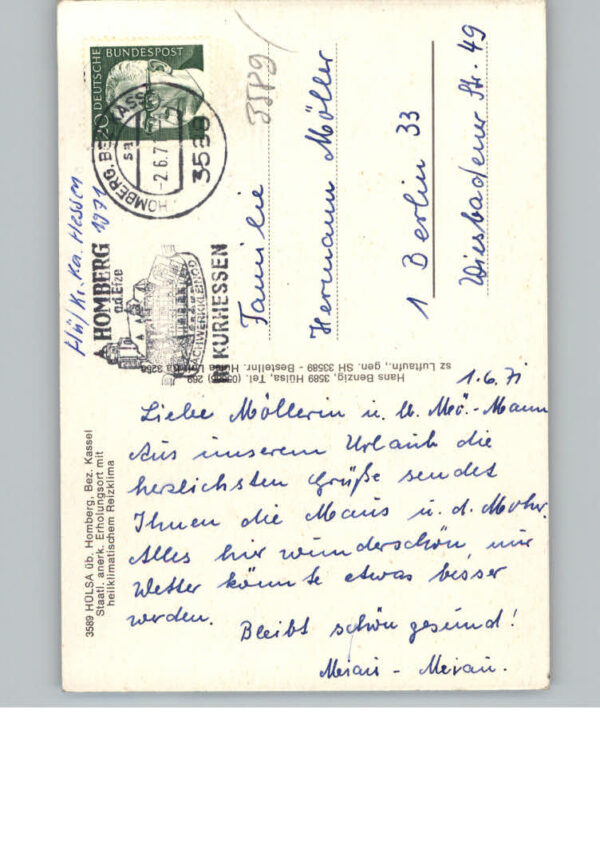 1.6.71
Liebe Möllerin u. lb. Mö.-Mann
Aus unserem Urlaub die
herzlichsten Grüße sendet
Ihnen die Maus u. d. Mohr.
Alles hier wunderschön, nur
Wetter könnte etwas besser
werden.
Bleibt schön gesund!
Familie
Hermann Möller
1 Berlin 33
Wiesbadener Str. 49
3589
DEUTSCHE BUNDESPOST
20
HOMBERG, BZ KASSEL
-2.6.7
3588
HOMBERG
a.d. Efze
FACHWERKKLEINOD
IN KURHESSEN
Hü/Kr. Ka. Hessen
1971
Hans Benzig, 3589 Hülsa, Tel.
sz Luftaufn., gen. SH 33589 - Bestellnr.
3589 HÜLSA üb. Homberg, Bez. Kassel
Staatl. anerk. Erholungsort mit
heilklimatischem Reizklima